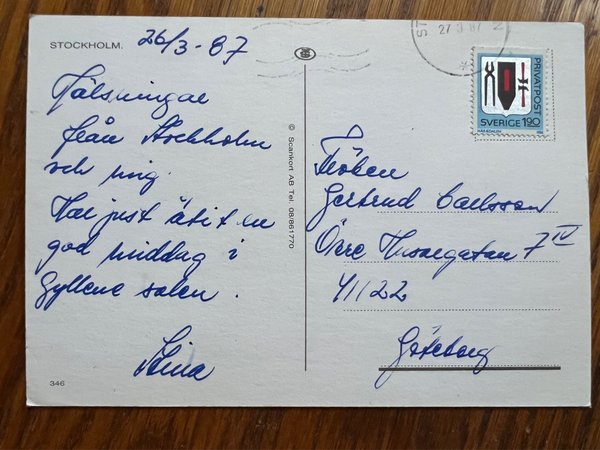 STOCKHOLM.
26/3-87
Hälsningar
från Stockholm
och mig.
Har just ätit en
god middag i
Gyllene salen.
Stina
346
© Scankort AB Tel. 08/861770
27 3 87
PRIVATPOST
SVERIGE 190
HÄRJEDALEN
Fröken
Gertrud Carlsson
Övre Husargatan 7 IV
411 22
Göteborg